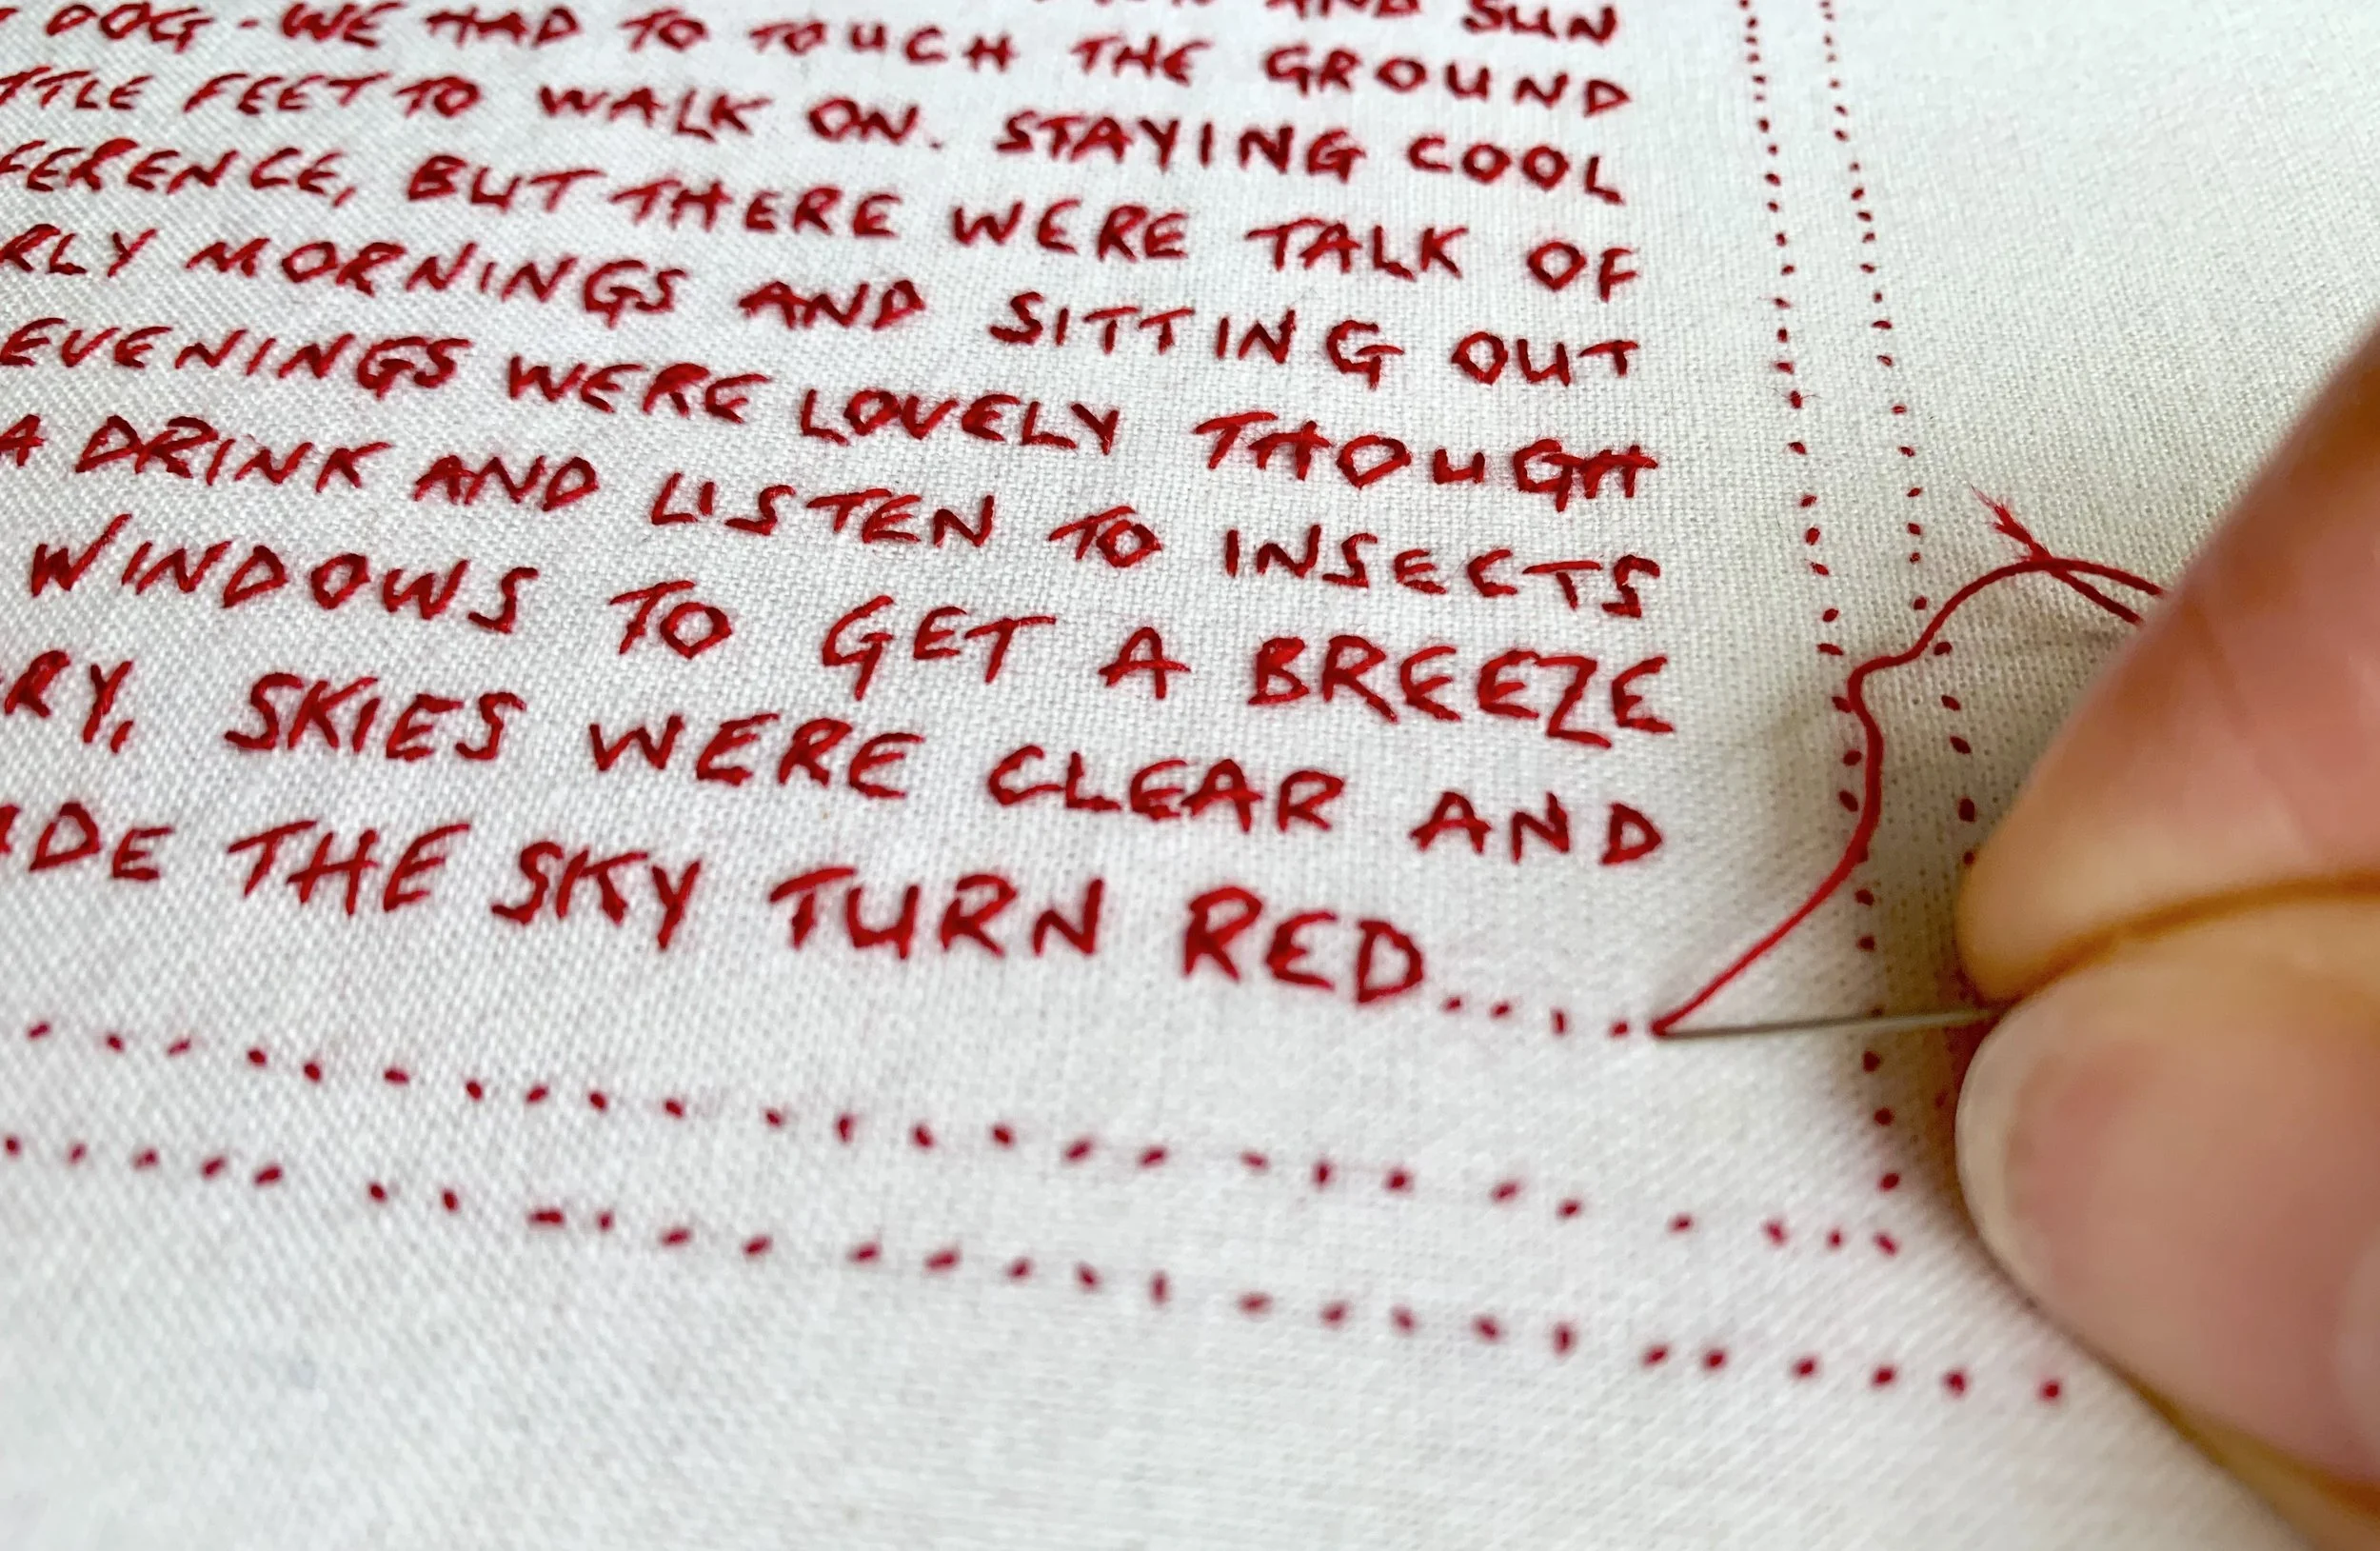 AND SUN
DOG - WE HAD TO TOUCH THE GROUND
TTLE FEET TO WALK ON. STAYING COOL
FERENCE, BUT THERE WERE TALK OF
RLY MORNINGS AND SITTING OUT
EVENINGS WERE LOVELY THOUGH
A DRINK AND LISTEN TO INSECTS
WINDOWS TO GET A BREEZE
RY, SKIES WERE CLEAR AND
DE THE SKY TURN RED.....